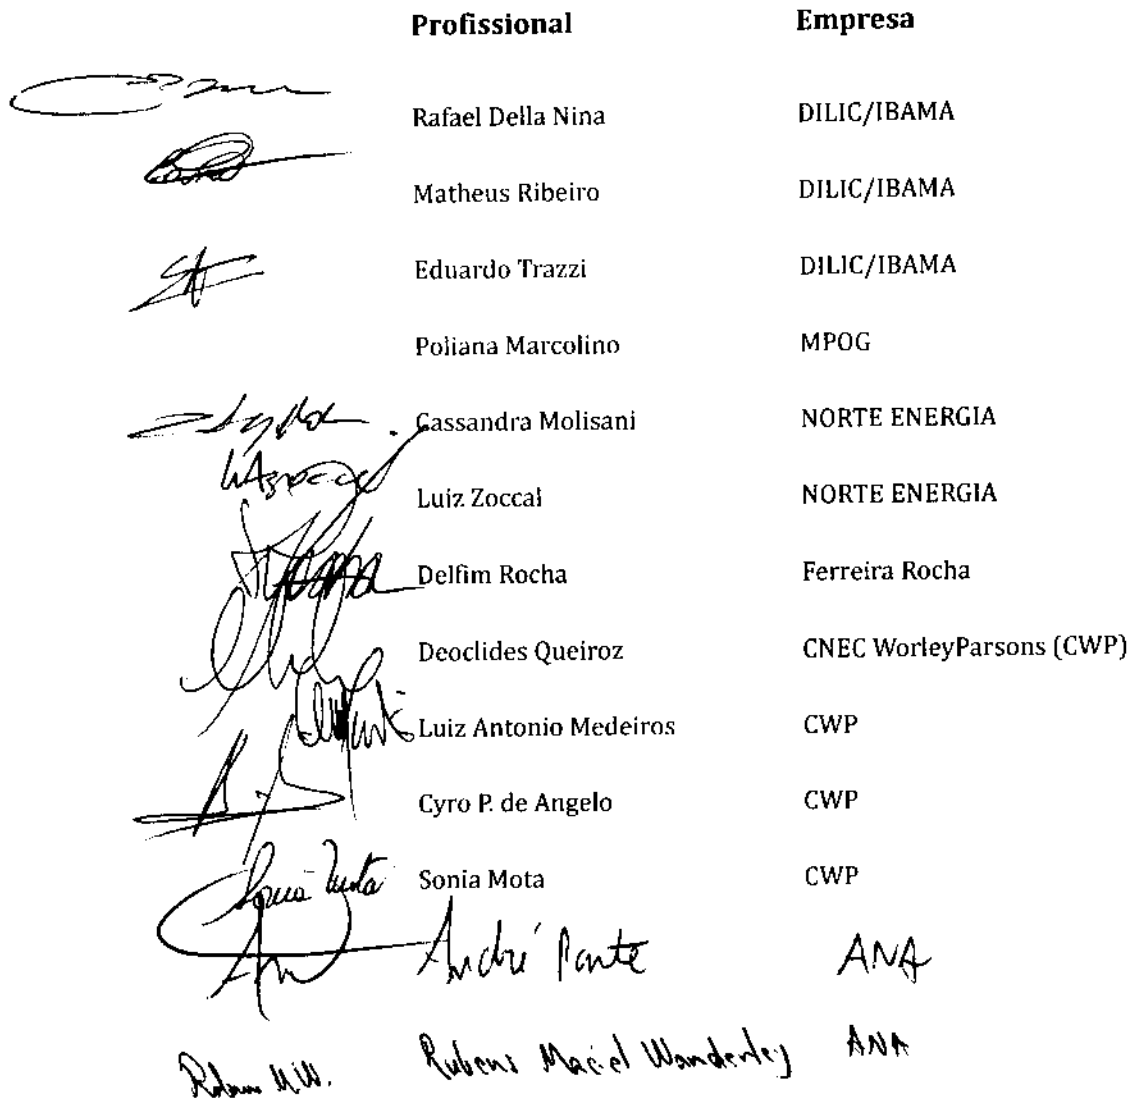 Profissional Empresa
Rafael Della Nina DILIC/IBAMA
Matheus Ribeiro DILIC/IBAMA
Eduardo Trazzi DILIC/IBAMA
Poliana Marcolino MPOG
Cassandra Molisani NORTE ENERGIA
Luiz Zoccal NORTE ENERGIA
Delfim Rocha Ferreira Rocha
Deoclides Queiroz CNEC WorleyParsons (CWP)
Luiz Antonio Medeiros CWP
Cyro P. de Angelo CWP
Sonia Mota Sonia Mota CWP
André Ponte ANA
Rubens M.W. Rubens Maciel Wanderley ANA